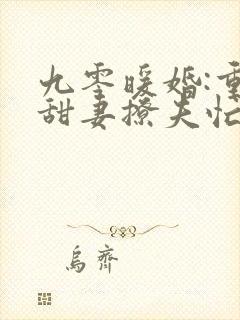 九零暖婚:重
甜妻撩夫忙
乌斋